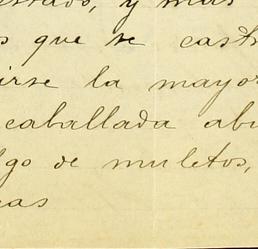 estado, y mas
s que se cast
irse la mayor
caballada abu
lgo de muletos,
as